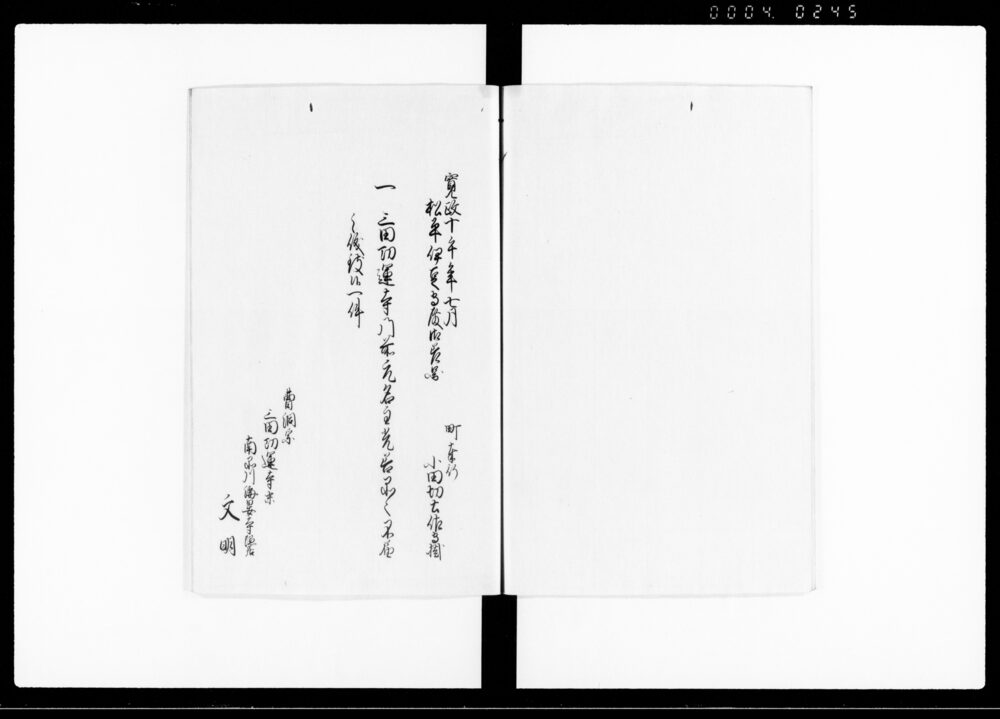 0004. 0245
寛政十午年七月
松平伊豆守殿御差図
町奉行
小田切土佐守掛
一 三田功運寺門前元名主
之儀ニ付一件
曹洞宗
三田功運寺末
南品川海晏寺隠居
文明